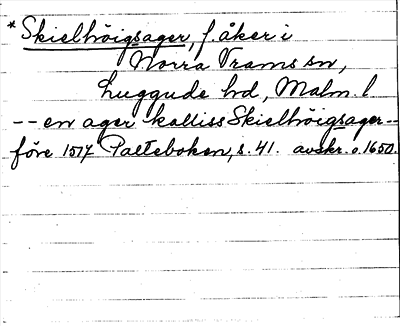 * Skielhöigsager, f. åker i
Norra Vrams sn,
Luggude hd, Malm. l
-- en ager kalliss Skielhöigsager --
före 1517 Palteboken, s. 41. avskr. o. 1650.